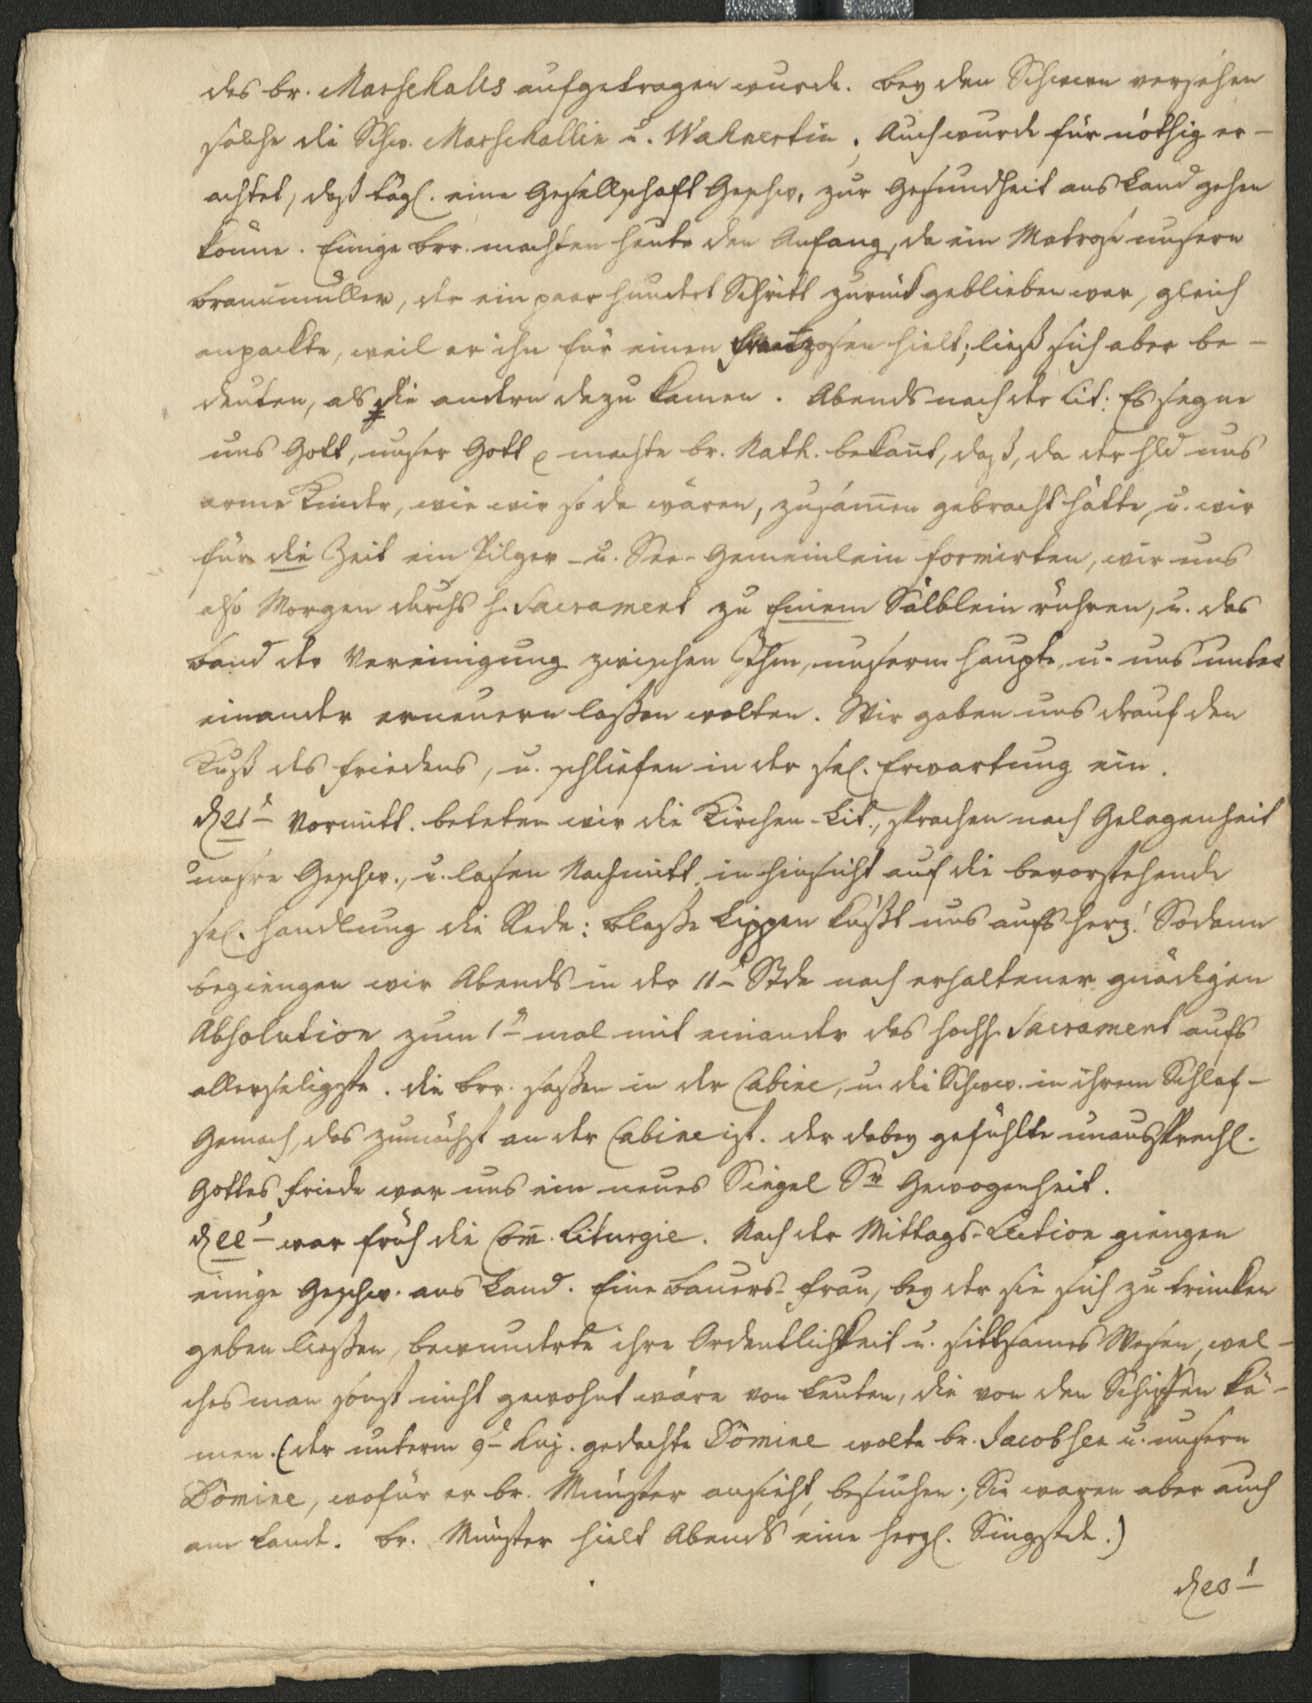 des br. Marschalls aufgetragen wurde. Bey den Schwen versehen
solche die Schw. Marschallin u. Wahnertin. Auch wurde für nöthig er-
achtet, daß tägl. eine Gesellschaft Geschw. zur Gesundheit ans Land gehen
könne. Einige Brr. machten heute den Anfang, da ein Matrose unsern
Braunmüller, der ein paar hundert Schritt zurück geblieben war, gleich
anpackte, weil er ihn für einen Franzosen hielt; ließ sich aber be-
deuten, als die andern dazu kamen. Abends nach der Lit: Es segne
uns Gott, unser Gott machte br. Nath. bekañt, daß, da der Hld uns
arme Kinder, wie wir so da wären, zusam̄en gebracht hätte, u. wir
für die Zeit ein Pilger- u. See-Gemeinlein formirten, wir uns
also Morgen durchs h. Sacrament zu Einem Sälblein rühren, u. das
Band der Vereinigung zwischen Ihm, unserm Haupte, u. uns unter
einander erneuern laßen wolten. Wir gaben uns drauf den
Kuß des Friedens, u. schliefen in der sel. Erwartung ein.
d 21t Vormitt. beteten wir die Kirchen-Lit., sprachen nach Gelegenheit
unsre Geschw., u. lasen Nachmitt. in Hinsicht auf die bevorstehende
sel. Handlung die Rede: Blaße Lippen küßt uns aufs Herz! Sodann
begiengen wir Abends in der 11t Stde nach erhaltener gnädigen
Absolution zum 1n mal mit einander das hochh. Sacrament aufs
allerseligste. Die Brr. saßen in der Cabine, u. die Schww. in ihrem Schlaf-
Gemach, das zunächst an der Cabine ist. Der dabey gefühlte unaussprechl.
Gottes Friede war uns ein neues Siegel Sr Gewogenheit.
d 22t war früh die Com̄. Liturgie. Nach der Mittags-Lection giengen
einige Geschw. ans Land. Eine Bauers-Frau, bey der sie sich zu trinken
geben ließen, bewunderte ihre Ordentlichkeit u. sittsames Wesen, wel-
ches man sonst nicht gewohnt wäre von Leuten, die von den Schiffen kä-
men. (Der unterm 9t huj. gedachte Dòmine wolte br. Jacobsen u. unsern
Dòmine, wofür er br. Münster ansieht, besuchen; Sie waren aber auch
am Lande. Br. Münster hielt Abends eine herzl. Singstde.)
d 23t